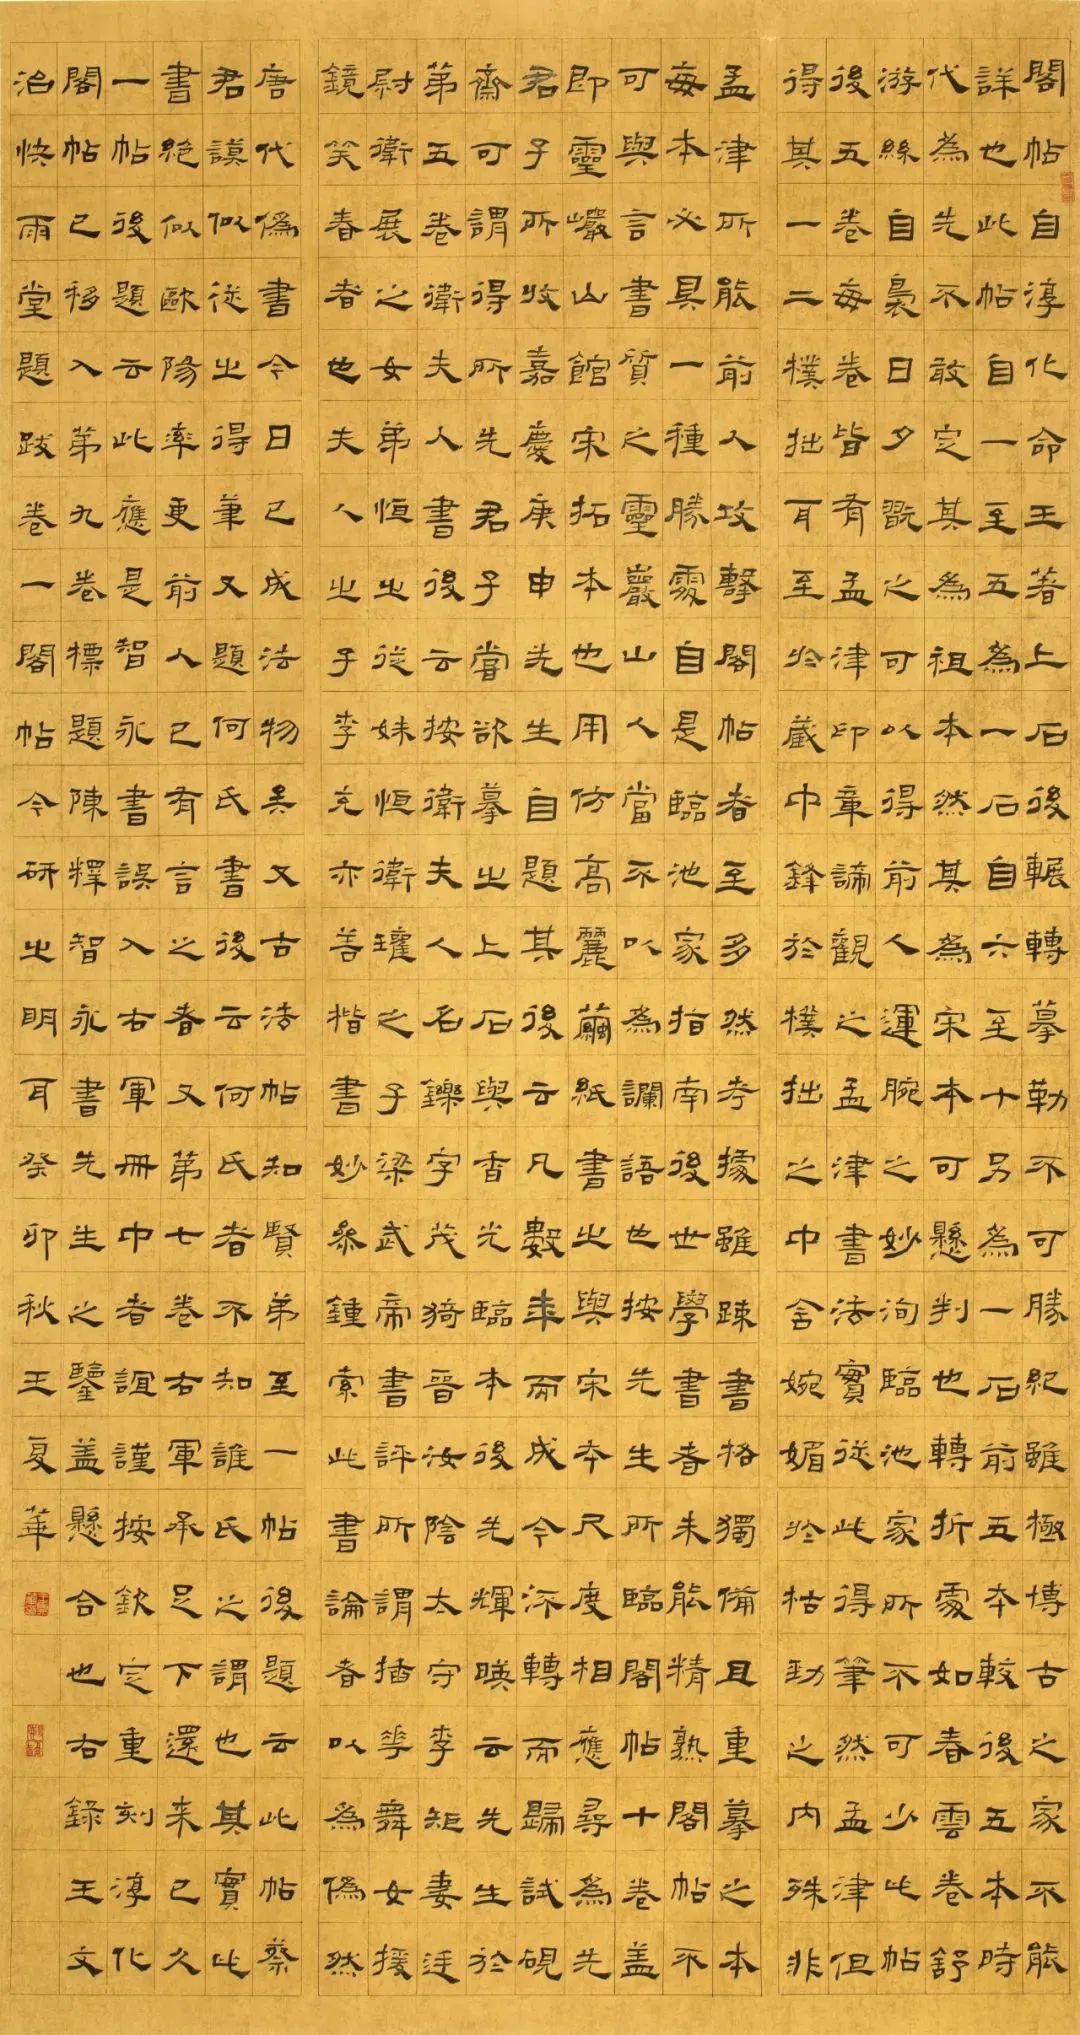 閣帖自淳化命王著上石後輾轉摹勒不可勝紀雖極博古之家不能
詳也此帖自一至五為一石自六至十另為一石前五本較後五本時
代為先不敢定其為祖本然其為宋本可懸判也轉折處如春雲卷舒
游絲自裊日夕翫之可以得前人運腕之妙洵臨池家所不可少此帖
後五卷每卷皆有孟津印章諦觀之孟津書法實從此得筆然孟津但
得其一二樸拙耳至於藏中鋒於樸拙之中含婉媚於枯勁之內殊非
孟津所能前人攻擊閣帖者至多然考據雖踈書格獨備且重摹之本
每本必具一種勝處自是臨池家指南後世學書者未能精熟閣帖不
可與言書質之靈巖山人當不以為讕語也按先生所臨閣帖十卷蓋
即靈巖山館宋拓本也用仿高麗繭紙書之與宋本尺度相應尋為先
君子所收嘉慶庚申先生自題其後云凡數年而成今流轉而歸試硯
齋可謂得所先君子嘗欲摹之上石與香光臨本後先輝暎云先生於
第五卷衛夫人書後云按衛夫人名鑠字茂猗晉汝陰太守李矩妻廷
尉衛展之女弟恒之從妹恒衛瓘之子梁武帝書評所謂插花舞女援
鏡笑春者也夫人之子李充亦善楷書妙參鍾索此書論者以為偽然
唐代偽書今日已成法物矣又古法帖知賢弟至一帖後題云此帖蔡
君謨似從之得筆又題何氏書後云何氏者不知誰氏之謂也其實此
書絕似歐陽率更前人已有言之者又第七卷右軍承足下還来已久
一帖後題云此應是智永書誤入右軍冊中者誼謹按欽定重刻淳化
閣帖已移入第九卷標題陳釋智永書先生之鑒蓋懸合也右錄王文
治快雨堂題跋卷一閣帖今研之明耳癸卯秋王夏華